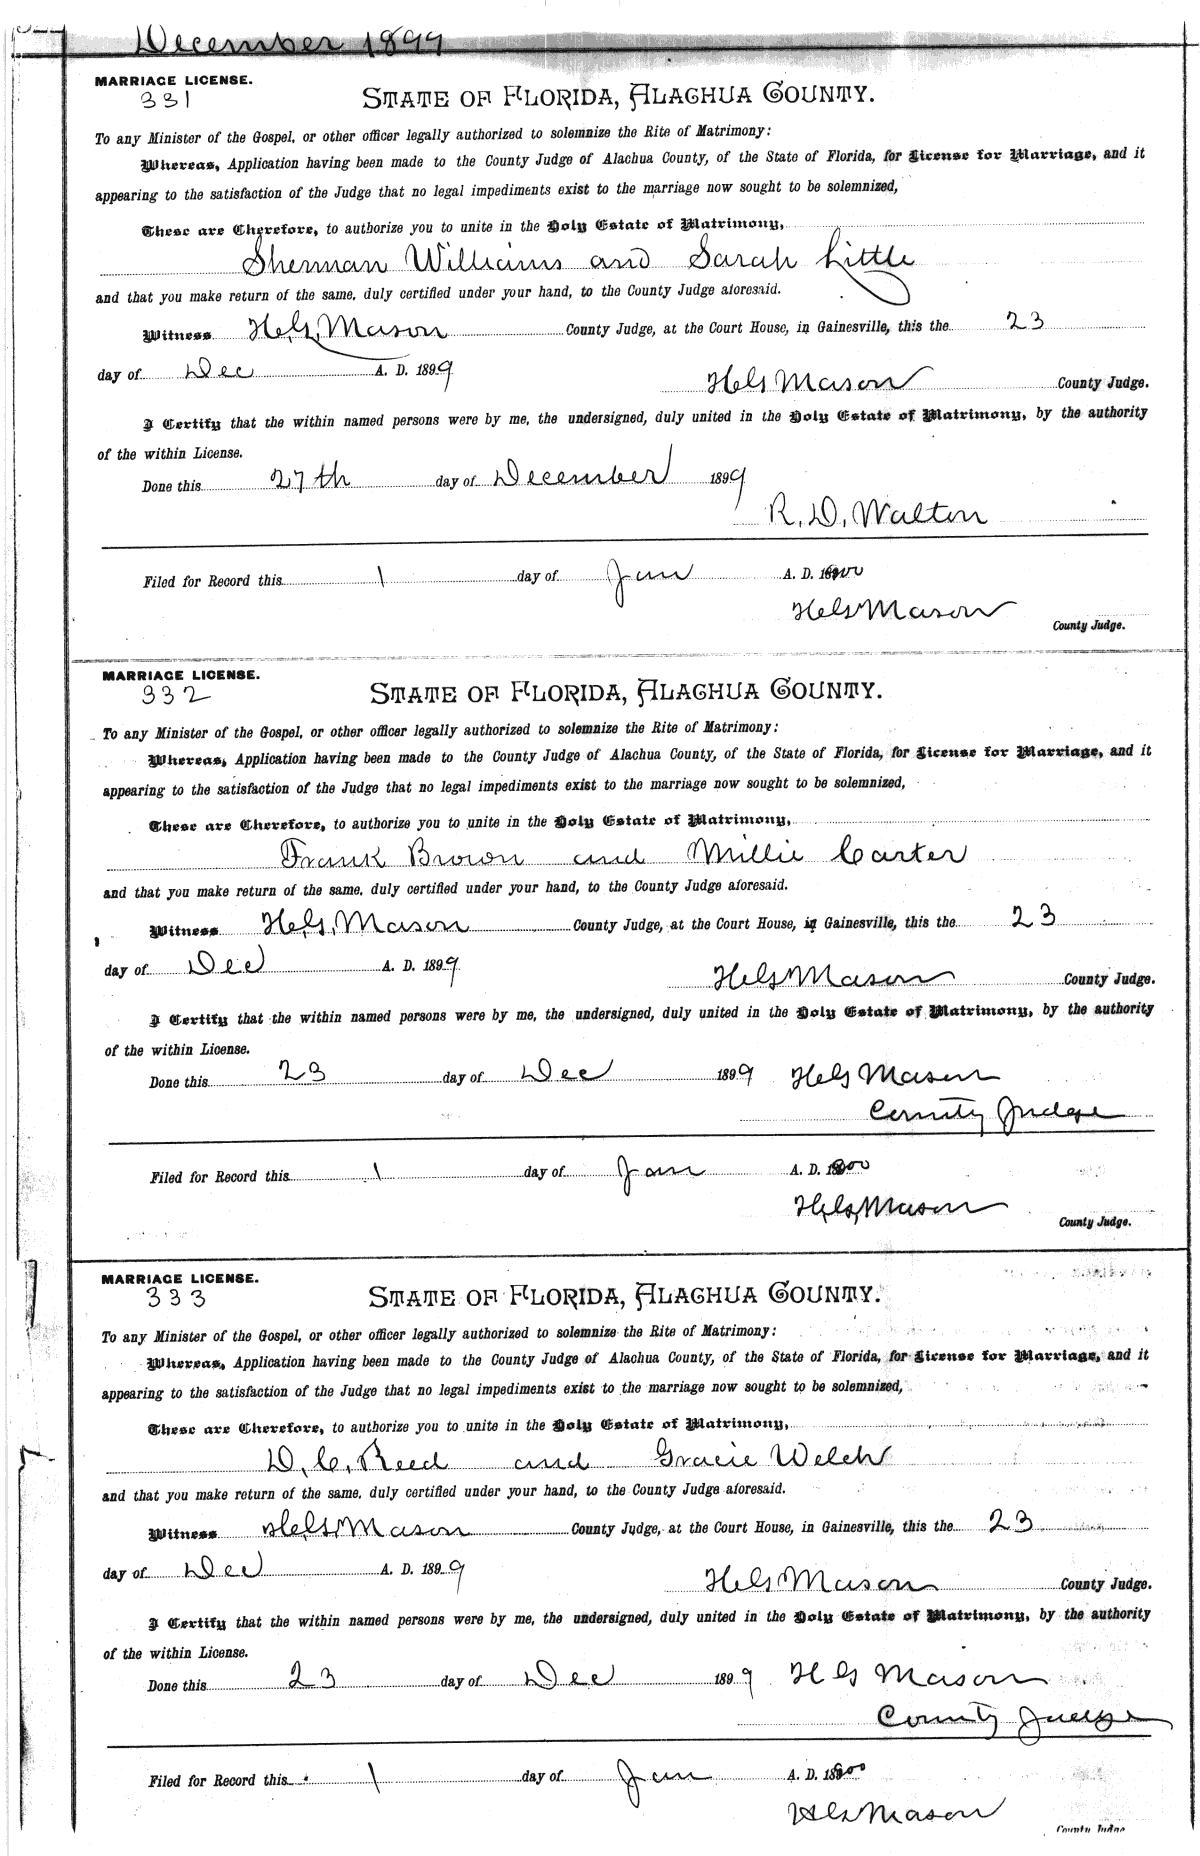 December 1899
MARRIAGE LICENSE.
331
STATE OF FLORIDA, ALACHUA COUNTY.
To any Minister of the Gospel, or other officer legally authorized to solemnize the Rite of Matrimony:
Whereas, Application having been made to the County Judge of Alachua County, of the State of Florida, for License for Marriage, and it
appearing to the satisfaction of the Judge that no legal impediments exist to the marriage now sought to be solemnized,
These are Therefore, to authorize you to unite in the Holy Estate of Matrimony,
Sherman Williams and Sarah Little
and that you make return of the same, duly certified under your hand, to the County Judge aforesaid.
Witness H.G. Mason County Judge, at the Court House, in Gainesville, this the 23
day of Dec A. D. 1899
H G Mason County Judge.
I Certify that the within named persons were by me, the undersigned, duly united in the Holy Estate of Matrimony, by the authority
of the within License.
Done this 27th day of December 1899
R. D. Walton
Filed for Record this 1 day of Jan A. D. 1900
H G Mason
County Judge.
MARRIAGE LICENSE.
332
STATE OF FLORIDA, ALACHUA COUNTY.
To any Minister of the Gospel, or other officer legally authorized to solemnize the Rite of Matrimony:
Whereas, Application having been made to the County Judge of Alachua County, of the State of Florida, for License for Marriage, and it
appearing to the satisfaction of the Judge that no legal impediments exist to the marriage now sought to be solemnized,
These are Therefore, to authorize you to unite in the Holy Estate of Matrimony,
Frank Brown and Millie Carter
and that you make return of the same, duly certified under your hand, to the County Judge aforesaid.
Witness H.G. Mason County Judge, at the Court House, in Gainesville, this the 23
day of Dec A. D. 1899
H G Mason County Judge.
I Certify that the within named persons were by me, the undersigned, duly united in the Holy Estate of Matrimony, by the authority
of the within License.
Done this 23 day of Dec 1899 H G Mason
County Judge
Filed for Record this 1 day of Jan A. D. 1900
H.G. Mason
County Judge.
MARRIAGE LICENSE.
333
STATE OF FLORIDA, ALACHUA COUNTY.
To any Minister of the Gospel, or other officer legally authorized to solemnize the Rite of Matrimony:
Whereas, Application having been made to the County Judge of Alachua County, of the State of Florida, for License for Marriage, and it
appearing to the satisfaction of the Judge that no legal impediments exist to the marriage now sought to be solemnized,
These are Therefore, to authorize you to unite in the Holy Estate of Matrimony,
D. C. Reed and Gracie Welch
and that you make return of the same, duly certified under your hand, to the County Judge aforesaid.
Witness H.G. Mason County Judge, at the Court House, in Gainesville, this the 23
day of Dec A. D. 1899
H G Mason County Judge.
I Certify that the within named persons were by me, the undersigned, duly united in the Holy Estate of Matrimony, by the authority
of the within License.
Done this 23 day of Dec 1899 H G Mason
County Judge
Filed for Record this 1 day of Jan A. D. 1900
H G Mason
County Judge